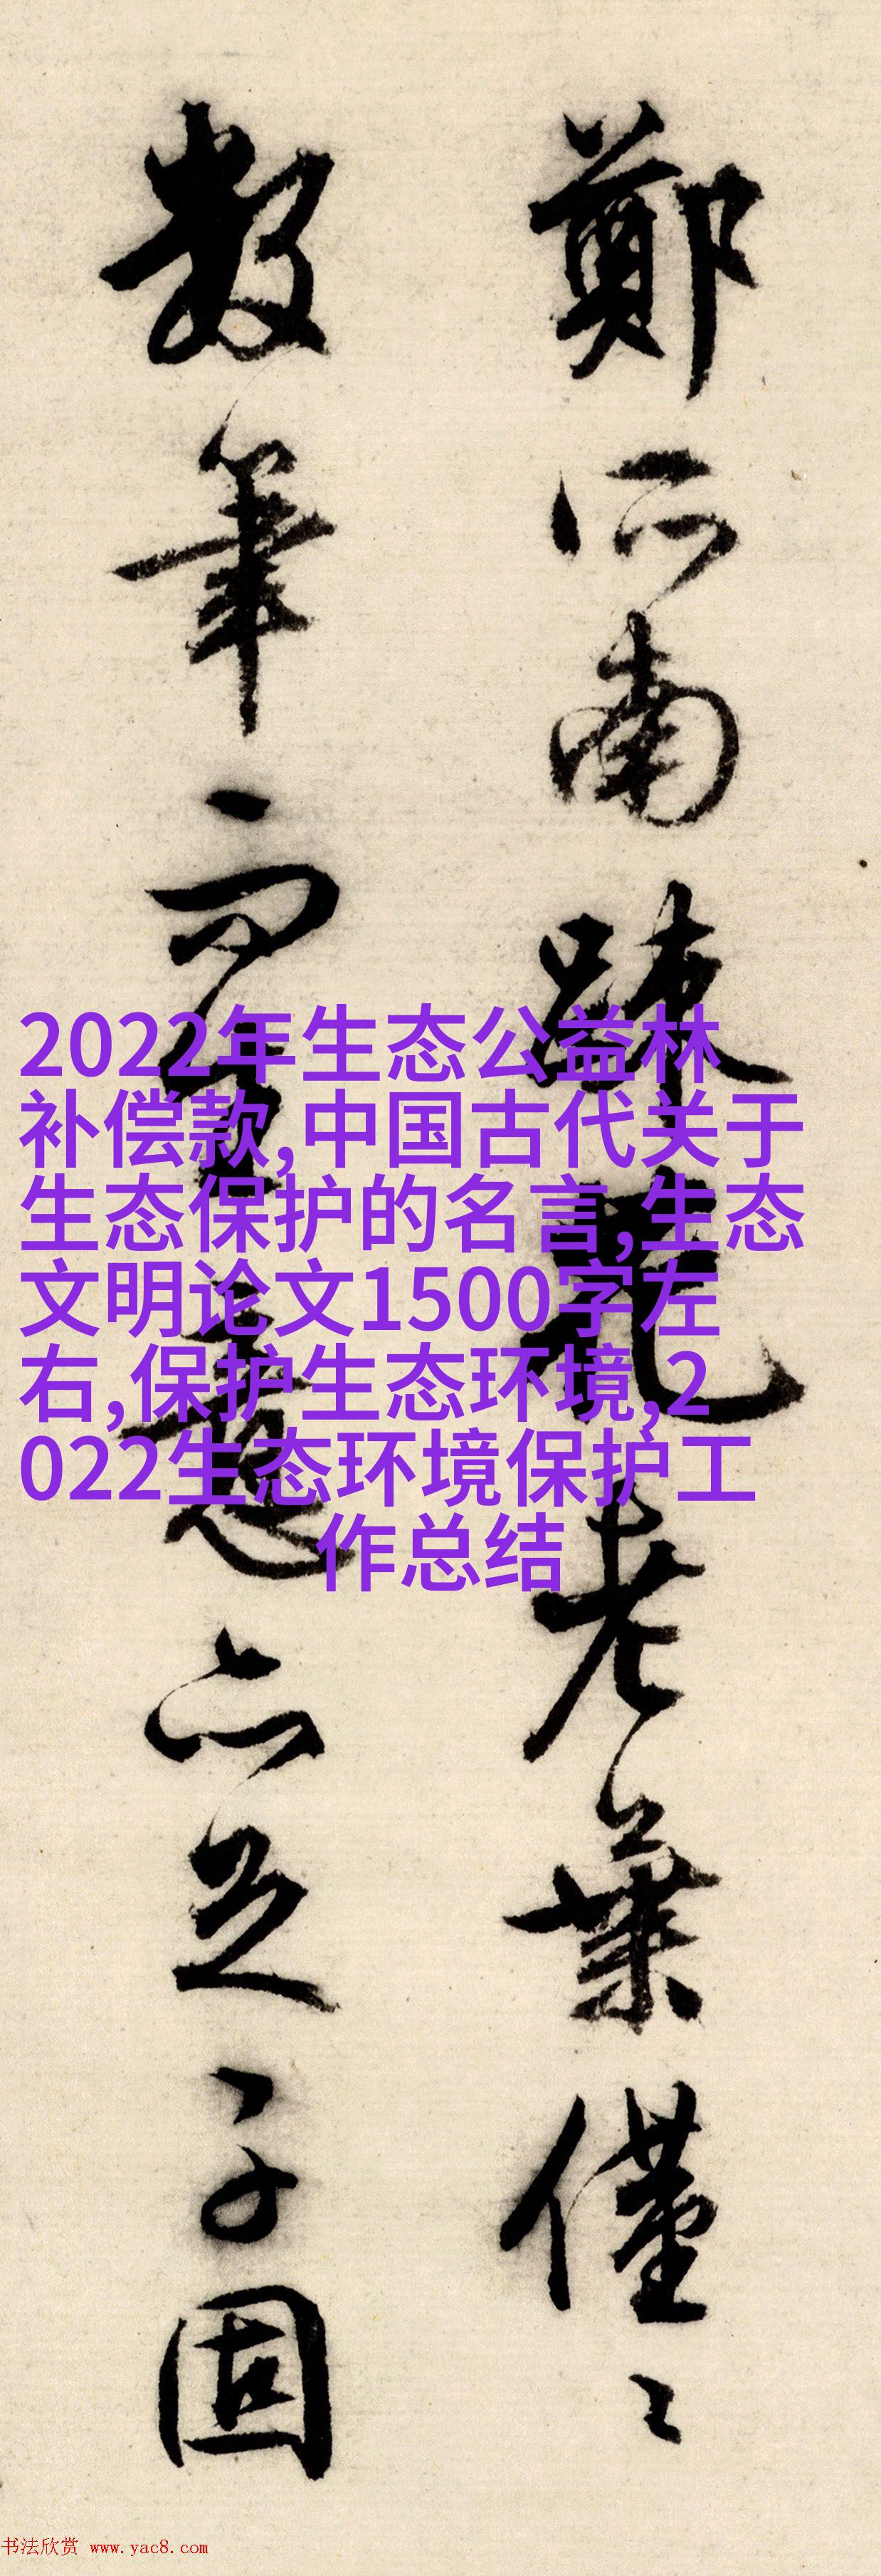 鄭所南疎花老葉僅〻
數筆而生意亦足子固
2022年生态公益林
补偿款,中国古代关于
生态保护的名言,生态
文明论文1500字左
右,保护生态环境,2
022生态环境保护工
作总结
书法欣赏 www.yac8.com